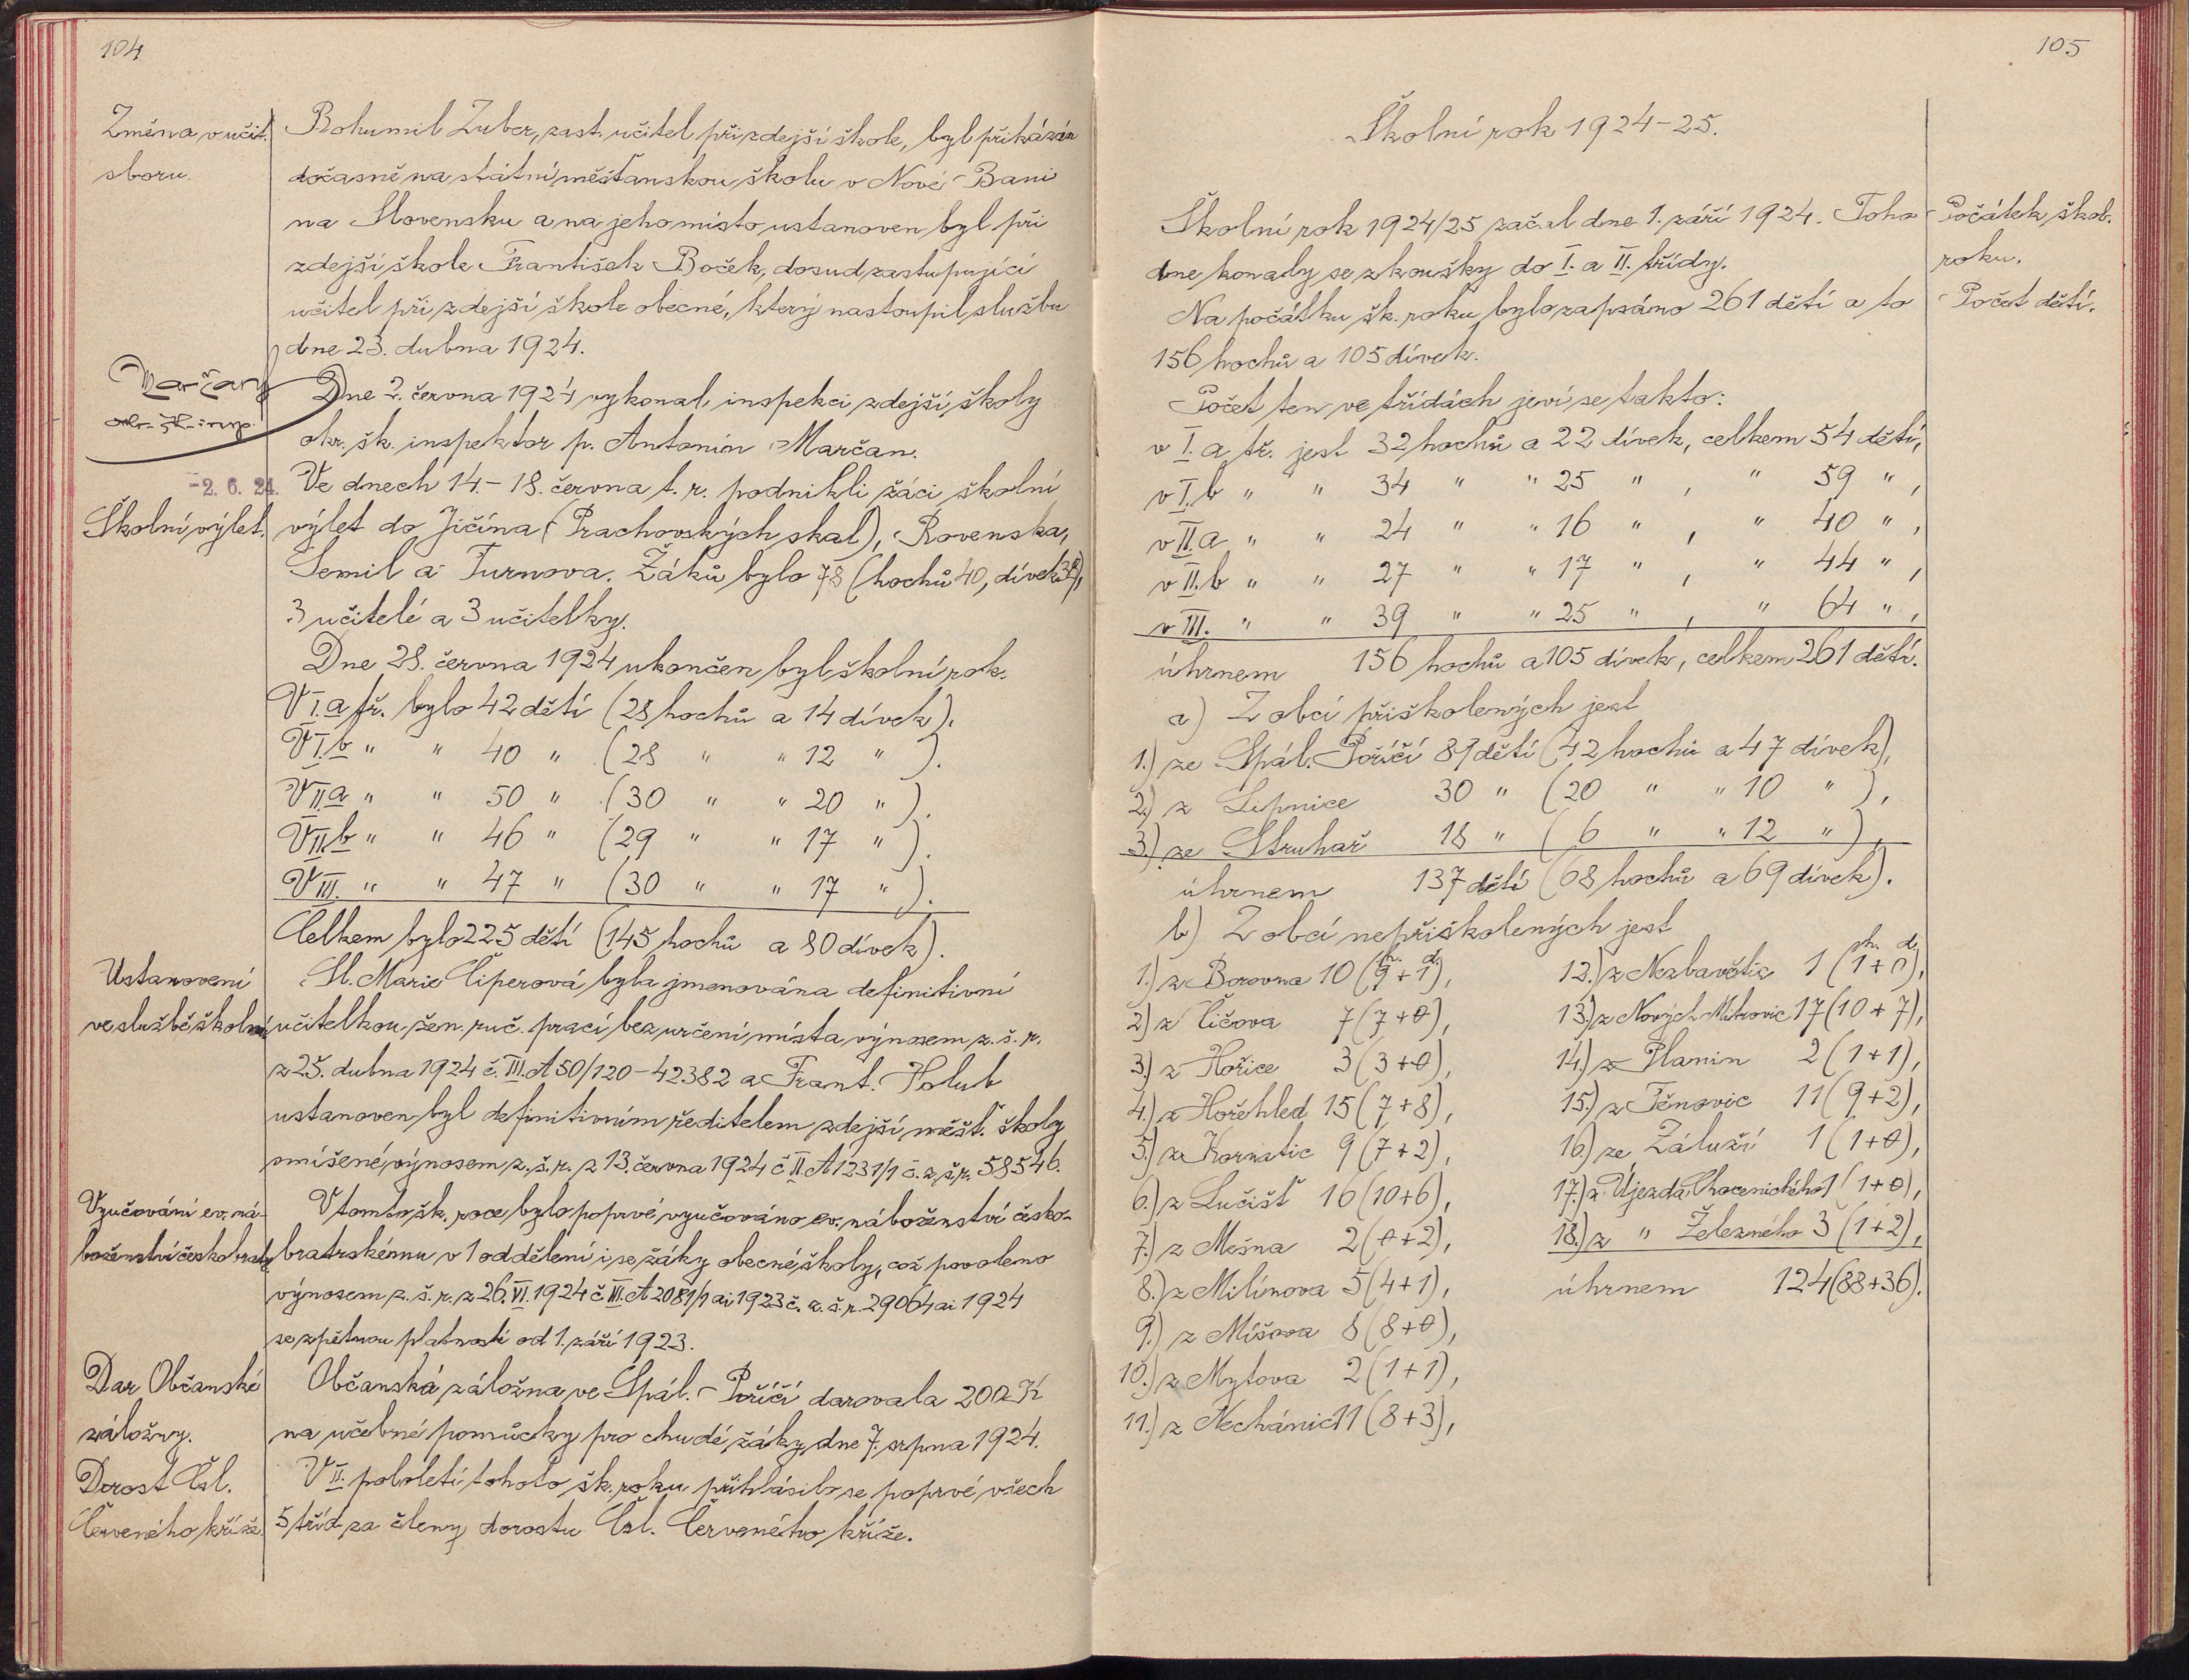 104
Změna v učit.
sboru.
Bohumil Zuber, zast. učitel při zdejší škole, byl přikázán
dočasně na státní měšťanskou školu v Nové Bani
na Slovensku a na jeho místo ustanoven byl při
zdejší škole František Boček, dosud zastupující
učitel při zdejší škole obecné, který nastoupil službu
dne 23. dubna 1924.
Marčan
okr. šk. insp.
Dne 2. června 1924 vykonal inspekci zdejší školy
okr. šk. inspektor p. Antonín Marčan.
-2. 6. 24.
Školní výlet.
Ve dnech 14.-18. června t. r. podnikli žáci školní
výlet do Jičína (Prachovských skal), Rovenska,
Semil a Turnova. Žáků bylo 78 (hochů 40, dívek 38),
3 učitelé a 3 učitelky.
Dne 28. června 1924 ukončen byl školní rok.
V I. a tř. bylo 42 dětí (28 hochů a 14 dívek).
V I. b " " 40 " (28 " " 12 " ).
V II. a " " 50 " (30 " " 20 " ).
V II. b " " 46 " (29 " " 17 " ).
V III. " " 47 " (30 " " 17 " ).
Celkem bylo 225 dětí (145 hochů a 80 dívek).
Ustanovení
ve službě školní
Sl. Marie Čiperová byla jmenována definitivní
učitelkou žen. ruč. prací bez určení místa výnosem z. š. r.
z 25. dubna 1924 č. III. A 50/120-42382 a Frant. Holub
ustanoven byl definitivním ředitelem zdejší měšť. školy
smíšené, výnosem z. š. r. z 13. června 1924 č. II. A 1231/1 č. z. š. r. 58546.
Vyučování ev. ná-
boženství českobratr.
V tomto šk. roce bylo poprvé vyučováno ev. náboženství česko-
bratrskému v 1 oddělení i se žáky obecné školy, což povoleno
výnosem z. š. r. z 26. VI. 1924 č. III. A 2081/1 ai 1923 č. z. š. r. 29064 ai 1924
se zpětnou platností od 1. září 1923.
Dar Občanské
záložny.
Občanská záložna ve Spál.-Poříčí darovala 200 K
na učebné pomůcky pro chudé žáky dne 7. srpna 1924.
Dorost Čsl.
Červeného kříže.
V II. pololetí tohoto šk. roku přihlásilo se poprvé všech
5 tříd za členy dorostu Čsl. Červeného kříže.
105
Školní rok 1924-25.
Školní rok 1924/25 začal dne 1. září 1924. Toho
dne konaly se zkoušky do I. a II. třídy.
Počátek škol.
roku.
Na počátku šk. roku bylo zapsáno 261 dětí a to
156 hochů a 105 dívek.
Počet dětí.
Počet ten ve třídách jeví se takto:
v I. a tř. jest 32 hochů a 22 dívek, celkem 54 dětí,
v I. b " " 34 " " 25 " , " 59 " ,
v II. a " " 24 " " 16 " , " 40 " ,
v II. b " " 27 " " 17 " , " 44 " ,
v III. " " 39 " " 25 " , " 64 " ,
úhrnem 156 hochů a 105 dívek, celkem 261 dětí.
a) Z obcí přiškolených jest
1.) ze Spál. Poříčí 89 dětí (42 hochů a 47 dívek),
2.) z Lipnice 30 " (20 " " 10 " ),
3.) ze Struhař 18 " ( 6 " " 12 " ),
úhrnem 137 dětí (68 hochů a 69 dívek).
b) Z obcí nepřiškolených jest
h. d.
1.) z Borovna 10 (9+1),
2.) z Čičova 7 (7+0),
3.) z Hořice 3 (3+0),
4.) z Hořehled 15 (7+8),
5.) z Kornatic 9 (7+2),
6.) z Lučišť 16 (10+6),
7.) z Mešna 2 (0+2),
8.) z Milínova 5 (4+1),
9.) z Míšova 8 (8+0),
10.) z Mytova 2 (1+1),
11.) z Nechánic 11 (8+3),
h. d.
12.) z Nezbavětic 1 (1+0),
13.) z Nových Mitrovic 17 (10+7),
14.) z Planin 2 (1+1),
15.) z Těnovic 11 (9+2),
16.) ze Záluží 1 (1+0),
17.) z Újezda Chocenického 1 (1+0),
18.) z " Železného 3 (1+2),
úhrnem 124 (88+36).